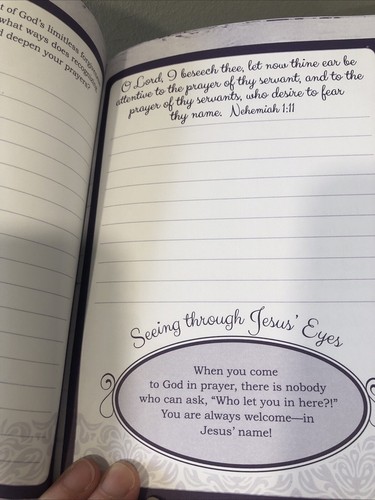 t of God's limitless
what ways does
d deepen your prayers?
O Lord, I beseech thee, let now thine ear be
attentive to the prayer of thy servant, and to the
prayer of thy servants, who desire to fear
thy name. Nehemiah 1:11
Seeing through Jesus' Eyes
When you come
to God in prayer, there is nobody
who can ask, "Who let you in here?!"
You are always welcome—in
Jesus' name!